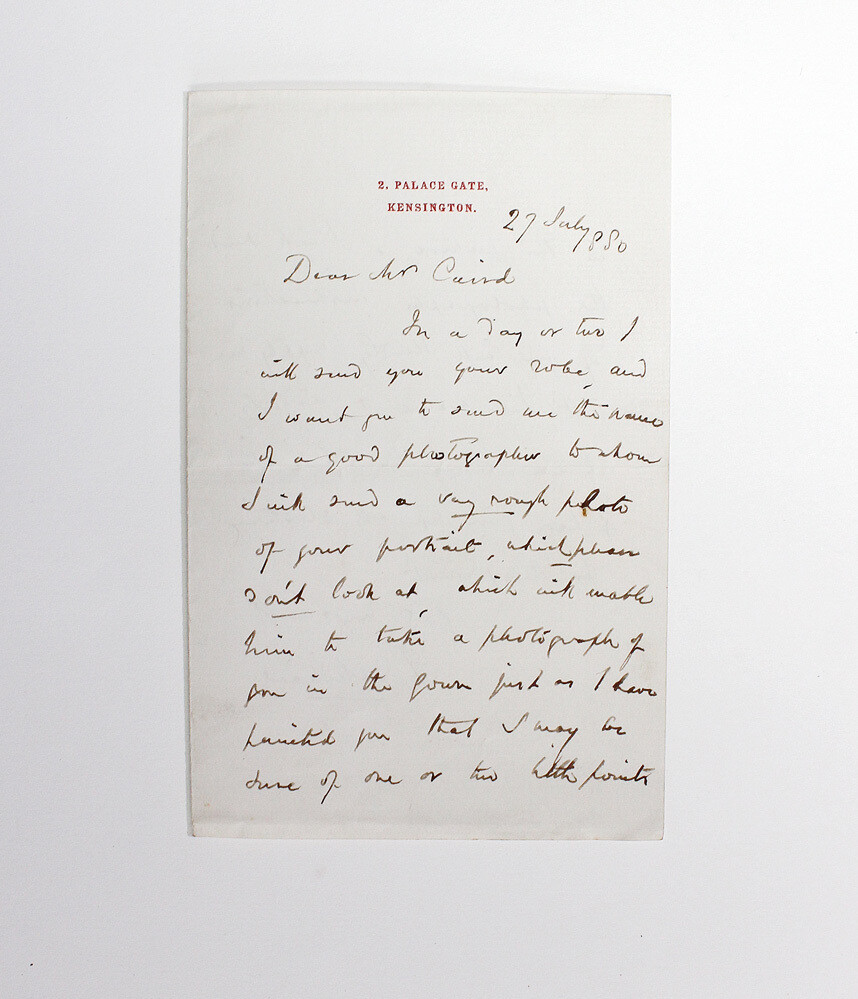 2, PALACE GATE,
KENSINGTON.
27 July 880
Dear Mr Caird
In a day or two I
will send you your robe, and
I want you to send me the name
of a good photographer to whom
I will send a very rough photo
of your portrait, which please
don't look at, which will enable
him to take a photograph of
you in the gown just as I have
painted you that I may be
sure of one or two little points